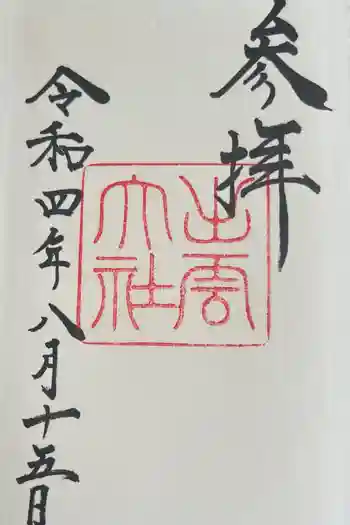 参拝
出雲
大社
令和四年八月十五日